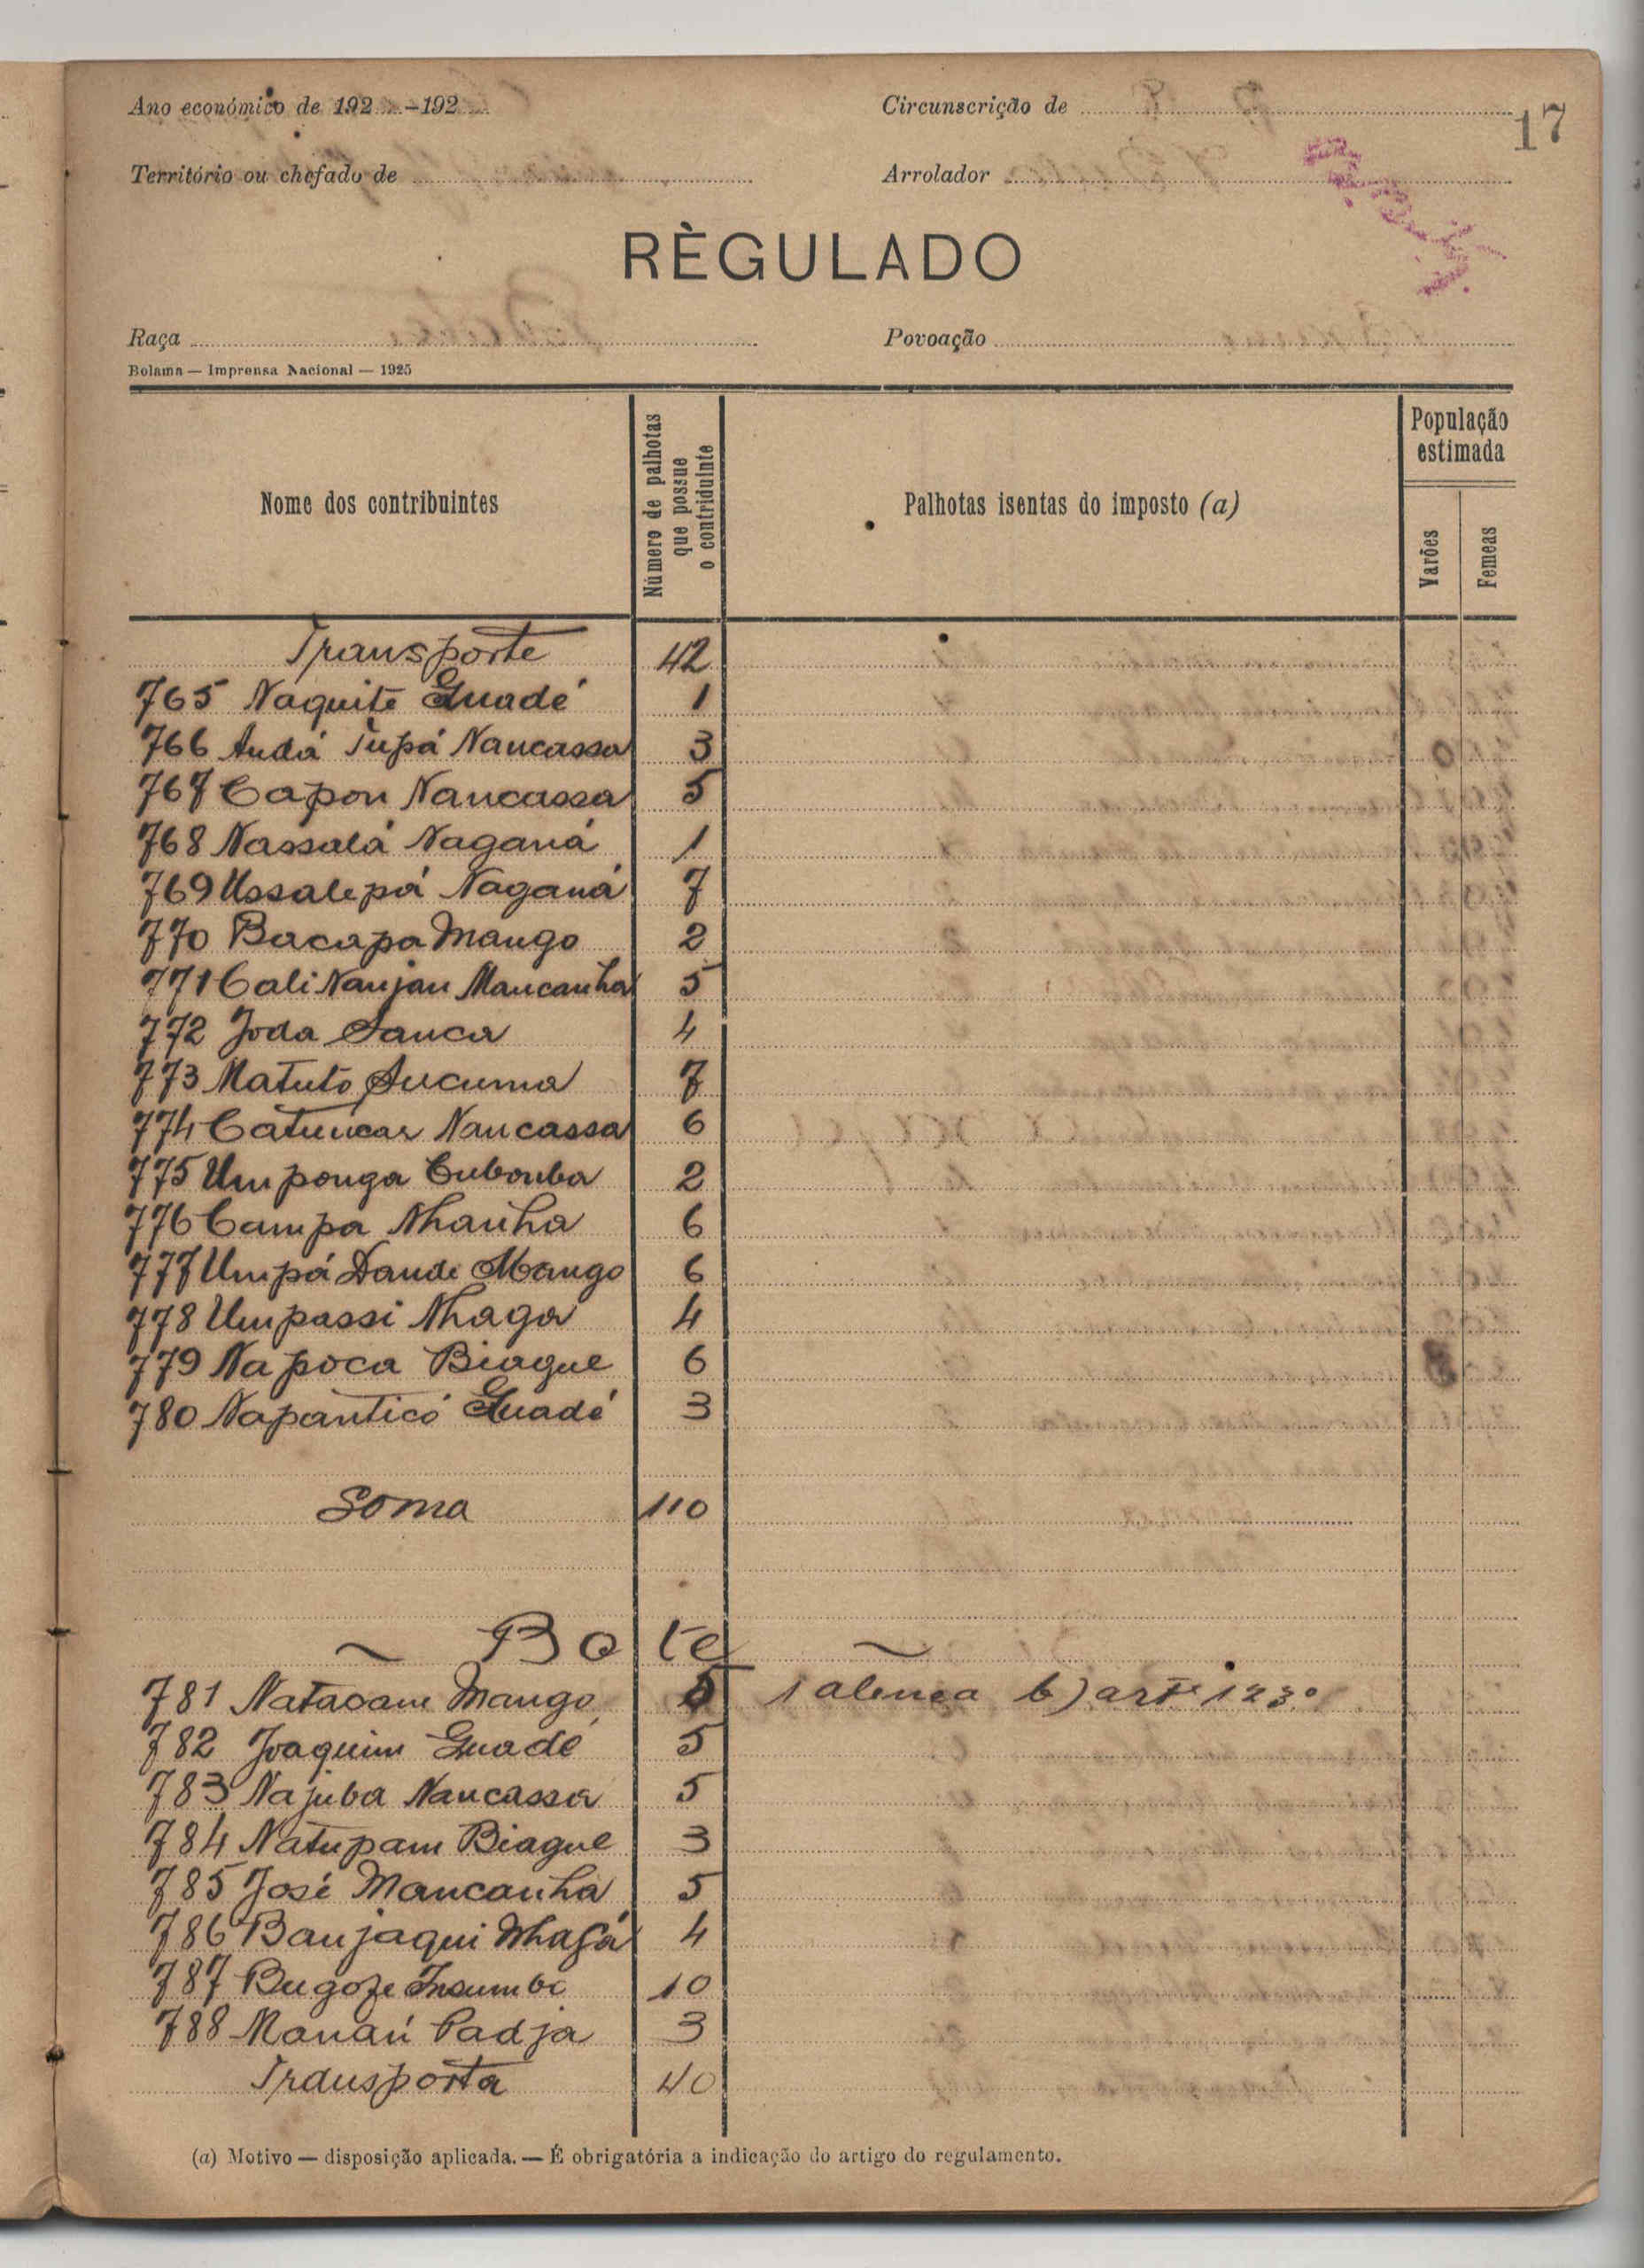 17
Ano económico de 192 -192
Circunscrição de
Território ou chefado de
Arrolador
RÈGULADO
Raça
Povoação
Bolama — Imprensa Nacional — 1925
Nome dos contribuintes
Número de palhotas que possue o contriduinte
Palhotas isentas do imposto (a)
População estimada
Varões
Femeas
Transporte 42
765 Naquite Guadé 1
766 Audá Tupá Naucassa 3
767 Capon Naucassa 5
768 Nassalá Naganá 1
769 Ussalepá Naganá 7
770 Bacapa Mango 2
771 Cali Naujau Maucanha 5
772 Joda Sanca 4
773 Matuto Sucuma 7
774 Catuucar Naucassa 6
775 Umponga Cubomba 2
776 Campa Nhanha 6
777 Umpá Daude Mango 6
778 Umpassi Nhaga 4
779 Napoca Biague 6
780 Napanticó Guadé 3
Soma 110
~ Bote ~
781 Natacam Mango 5 1 alinea b) artº 123º
782 Joaquim Guadé 5
783 Najuba Naucassa 5
784 Natupam Biague 3
785 José Mancanha 5
786 Banjaqui Nhafá 4
787 Bugofe Insumbe 10
788 Manaú Padja 3
Transporta 40
(a) Motivo — disposição aplicada. — É obrigatória a indicação do artigo do regulamento.